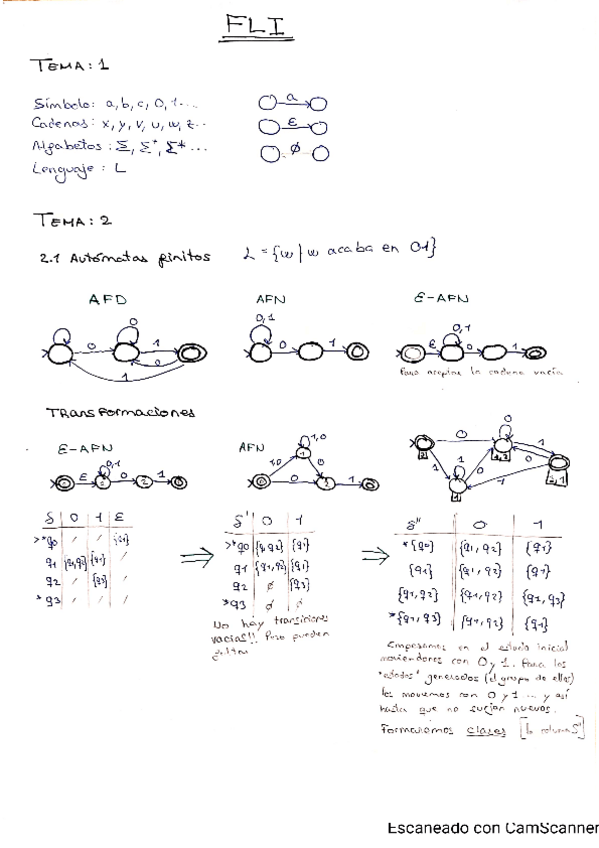 FLI
TEMA: 1
Símbolo: a, b, c, 0, 1...
a
Cadenas: x, y, v, u, w, z..
ε
Alfabetos: Σ, Σ⁺, Σ* ...
∅
Lenguaje: L
TEMA: 2
2.1 Autómatas finitos L = {w | w acaba en 01}
AFD AFN ε-AFN
0 0,1 0,1
0 1 0 1 ε 0 1
0
1
Para aceptar la cadena vacía
Transformaciones
ε-AFN AFN
δ 0 1 ε
>*q0 / / {q1}
q1 {q1,q2} {q1} /
q2 / {q3} /
*q3 / / /
δ' 0 1
>*q0 {q1,q2} {q1}
q1 {q1,q2} {q1}
q2 ∅ {q3}
*q3 ∅ ∅
No hay transiciones
vacías!! Pero pueden
δ'' 0 1
*{q0} {q1,q2} {q1}
{q1} {q1,q2} {q1}
{q1,q2} {q1,q2} {q1,q3}
*{q1,q3} {q1,q2} {q1}
Empezamos en el estado inicial
moviendonos con 0 y 1. Para los
"estados" generados (el grupo de ellos)
los movemos con 0 y 1 ... y así
hasta que no surjan nuevos.
Formaremos clases
Escaneado con CamScanner